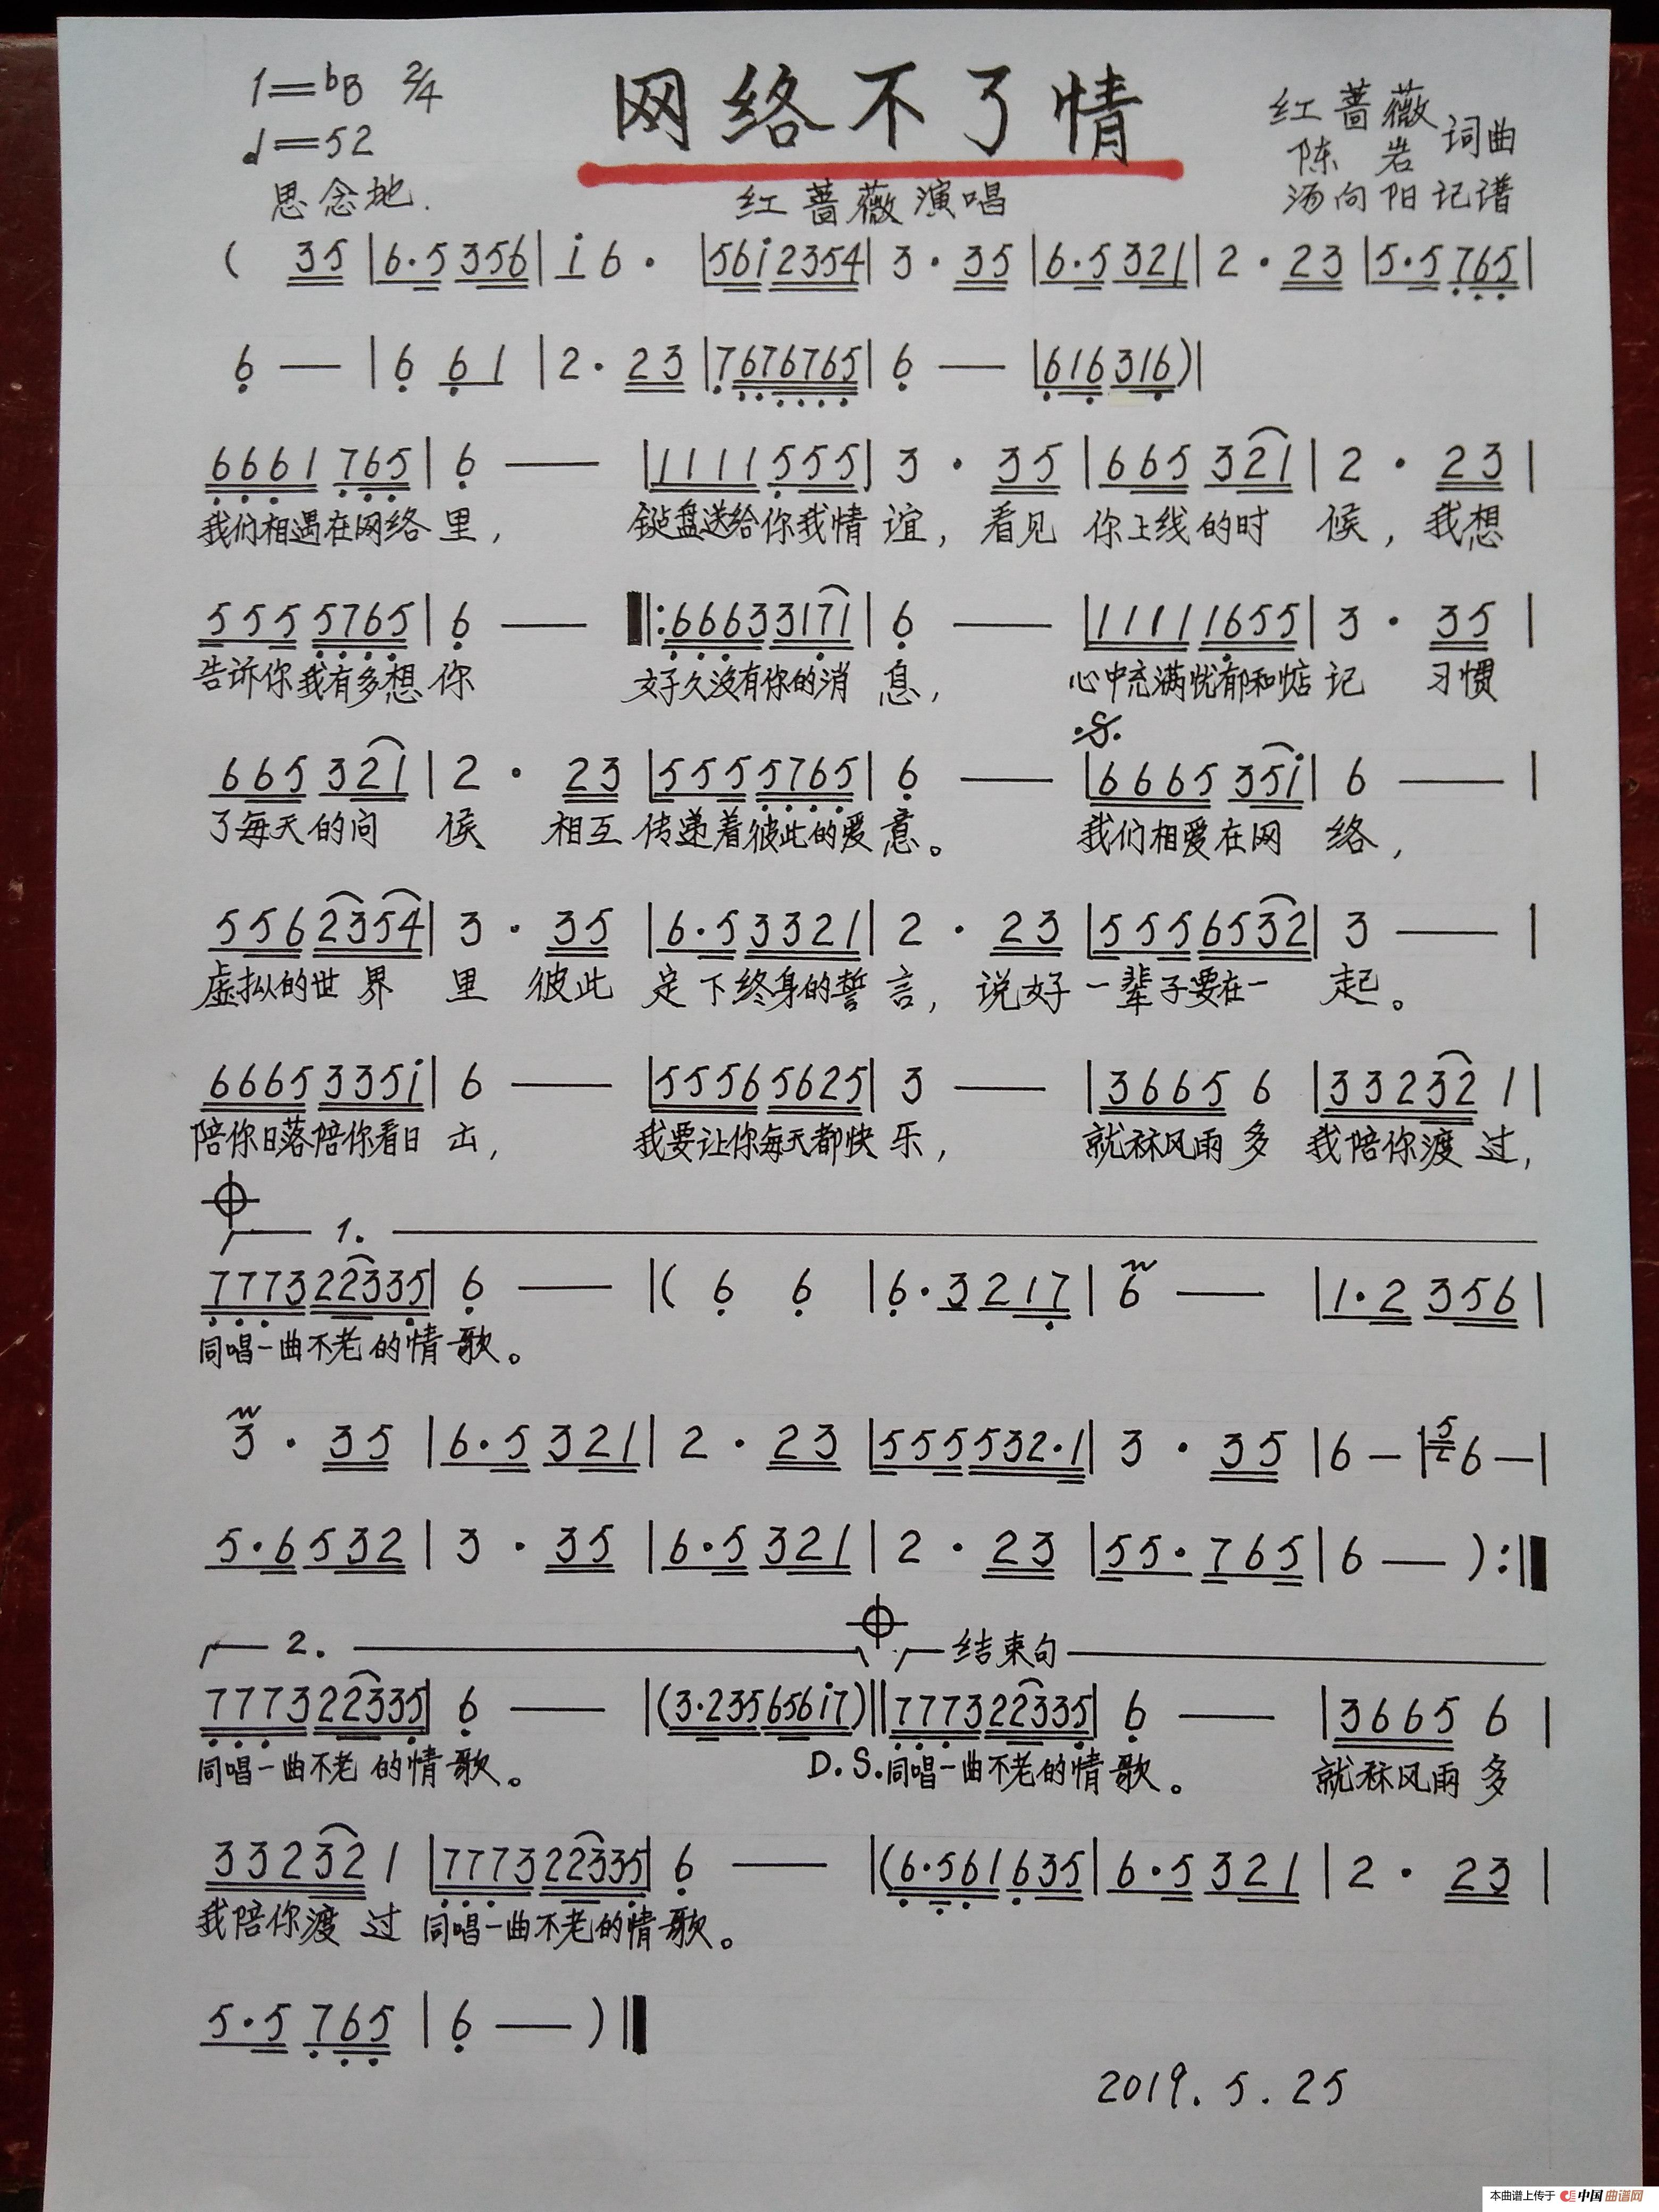 1=bB 2/4 网络不了情 红蔷薇
♩=52 陈岩 词曲
思念地. 红蔷薇演唱 汤向阳记谱
( 35 | 6·5 356 | i 6· | 56i2354 | 3·35 | 6·5 321 | 2·23 | 5·5 765 |
6 — | 6 61 | 2·23 | 7676765 | 6 — | 616316) |
6661 765 | 6 — | 1111555 | 3·35 | 665 321 | 2·23 |
我们相遇在网络里, 键盘送给你我情谊, 看见你上线的时候, 我想
555 5765 | 6 — |: 6663 3171 | 6 — | 1111 1655 | 3·35 |
告诉你我有多想你 好久没有你的消息, 心中充满忧郁和惦记 习惯
665 321 | 2·23 | 555 5765 | 6 — | 6665 35i | 6 — |
了每天的问候 相互传递着彼此的爱意。 我们相爱在网络,
556 2354 | 3·35 | 6·5 3321 | 2·23 | 555 6532 | 3 — |
虚拟的世界里 彼此定下终身的誓言, 说好一辈子要在一起。
6665 335i | 6 — | 5556 5625 | 3 — | 3665 6 | 33232 1 |
陪你日落陪你看日出, 我要让你每天都快乐, 就秝风雨多 我陪你渡过,
1.
7773 22335 | 6 — | ( 6 6 | 6·3 217 | 6 — | 1·2 356 |
同唱一曲不老的情歌。
3·35 | 6·5 321 | 2·23 | 555 532·1 | 3·35 | 6 — | 5 6 — |
5·6 532 | 3·35 | 6·5 321 | 2·23 | 55· 765 | 6 — ) :|
2. 结束句
7773 22335 | 6 — | (3·235 656i7) || 7773 22335 | 6 — | 3665 6 |
同唱一曲不老的情歌。 D.S.同唱一曲不老的情歌。 就秝风雨多
33232 1 | 7773 22335 | 6 — | (6·561 635 | 6·5 321 | 2·23 |
我陪你渡过 同唱一曲不老的情歌。
5·5 765 | 6 — ) ||
2019.5.25
本曲谱上传于 中国曲谱网